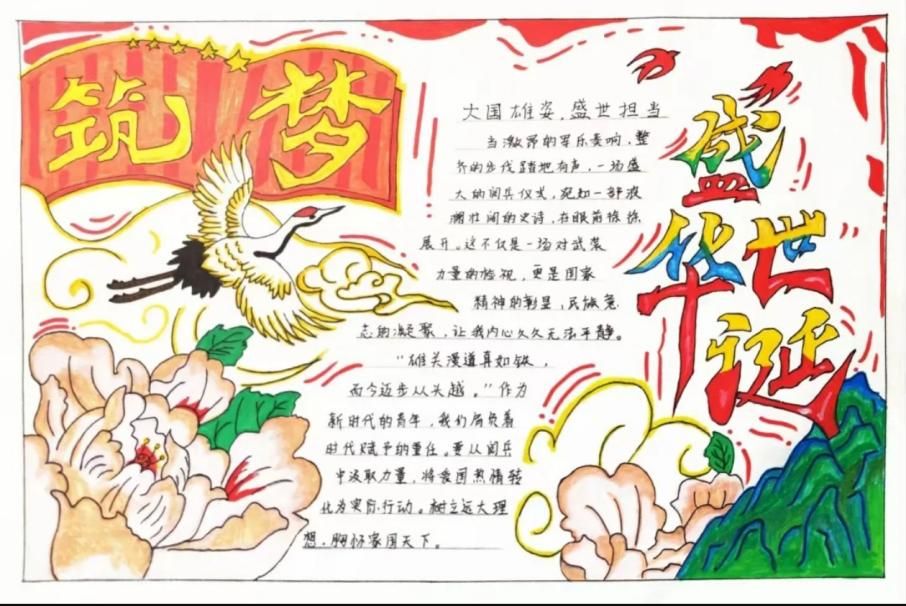 筑梦
盛世华诞
大国雄姿,盛世担当
当激昂的军乐奏响,整
齐的步伐踏地有声,一场盛
大的阅兵仪式,宛如一部波
澜壮阔的史诗,在眼前徐徐
展开。这不仅是一场对武装
力量的检视,更是国家
精神的彰显,民族意
志的凝聚,让我内心久久无法平静。
“雄关漫道真如铁,
而今迈步从头越。”作为
新时代的青年,我们肩负着
时代赋予的重任。要从阅兵
中汲取力量,将爱国热情转
化为实际行动。树立远大理
想,胸怀家国天下。